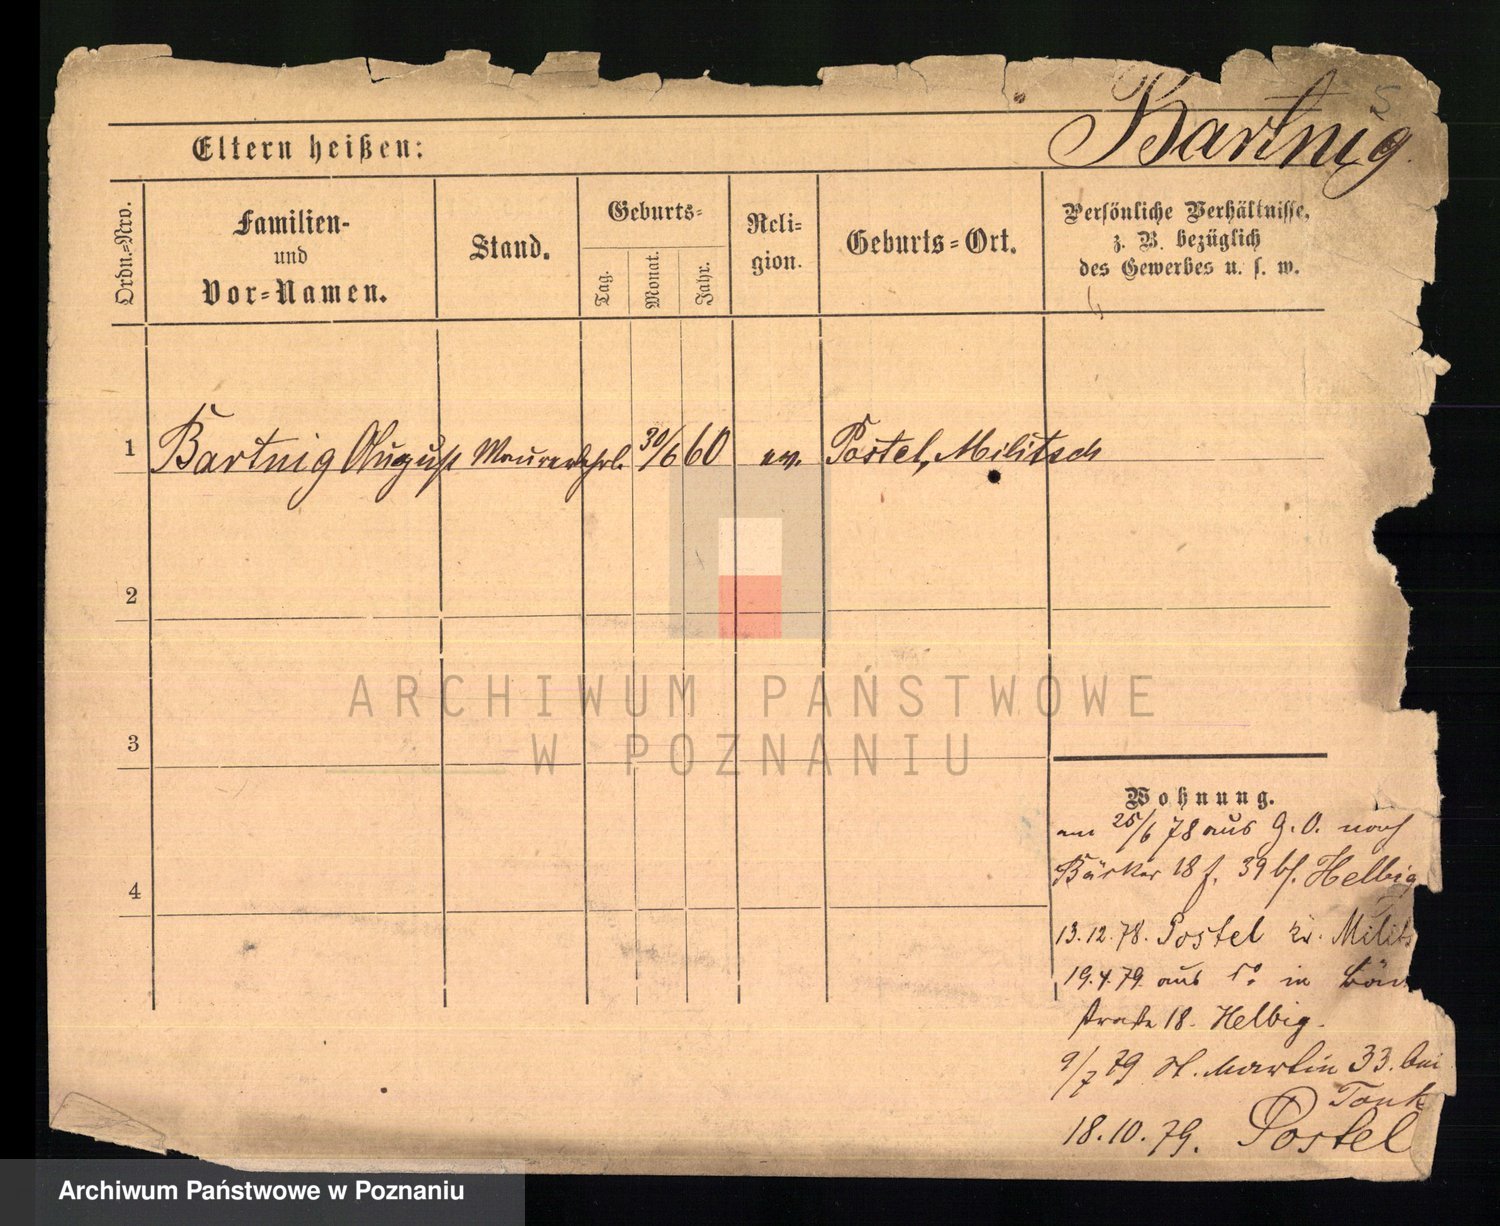 5
Bartnig
Eltern heißen:
Ordn.=Nro.
Familien-
und
Vor=Namen.
Stand.
Geburts=
Tag.
Monat.
Jahr.
Reli=
gion.
Geburts=Ort.
Persönliche Verhältnisse,
z. B. bezüglich
des Gewerbes u. s. w.
1 Bartnig August Maurerlehrl. 30/6 60 ev. Postel, Militsch
2
3
4
ARCHIWUM PAŃSTWOWE
W POZNANIU
Wohnung.
am 25/6 78 aus g. O. nach
Bäcker 18 f. 39 bf. Helbig
13.12.78. Postel Kr. Milits
19.4.79 aus in Bäck
straße 18. Helbig.
9/7 79 St. Martin 33. bei
18.10.79. Postel
Archiwum Państwowe w Poznaniu